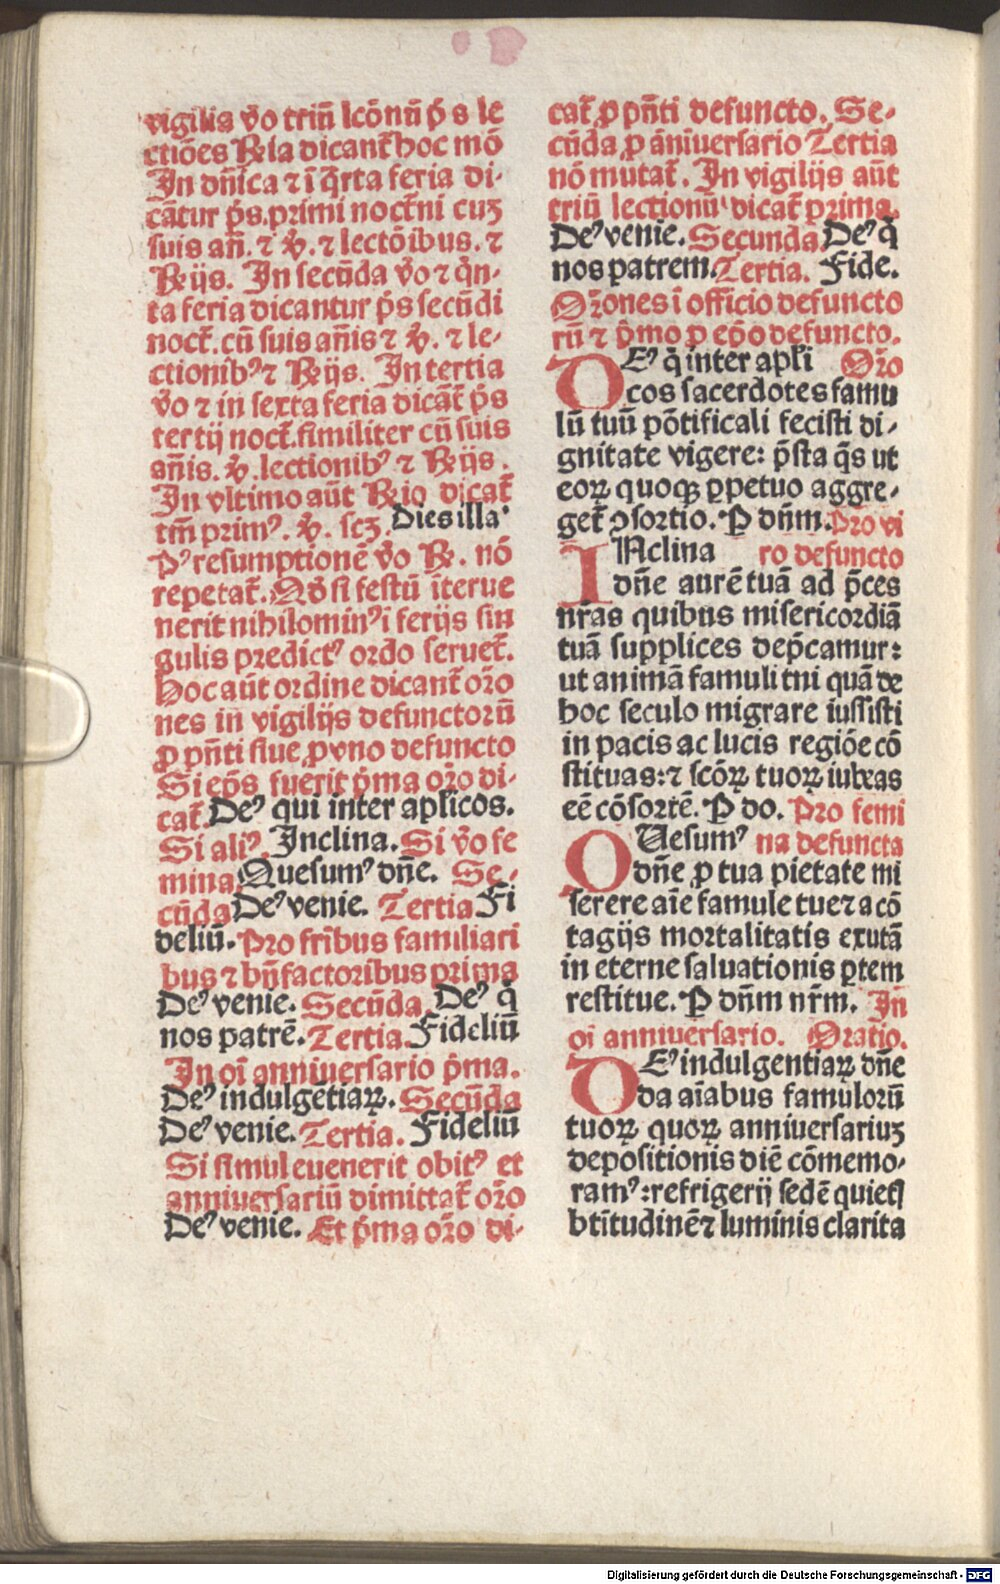 vigilia v̄o triū lcōnū p̄s le
ctiōes ℞ia dicant̄ hoc mō
In dn̄ica ⁊ ī q̄rta feria di-
cātur p̄s. primi noct̄ni cuȝ
suis an̄. ⁊ ℣. ⁊ lectōibus. ⁊
℞ijs. In secūda v̄o ⁊ q̄n-
ta feria dicantur p̄s secūdi
noct̄. cū suis an̄is ⁊ ℣. ⁊ le-
ctionibꝰ ⁊ ℞ijs. In tertia
v̄o ⁊ in sexta feria dicāt̄ p̄s
tertij noct̄. similiter cū suis
an̄is. ℣. lectionibꝰ ⁊ ℞ijs.
In vltimo aūt ℞io dicat̄
tm̄ primꝰ. ℣. scȝ. Dies illa
Pꝰ resumptionē v̄o ℞. nō
repetat̄. Qd̄ si festū īterue
nerit nihilominꝰ i ferijs sin
gulis predictꝰ ordo seruet̄.
Hoc aūt ordine dicant̄ or̄o
nes in vigilijs defunctorū
ꝓ pn̄ti siue ꝓ vno defuncto
Si ep̄s fuerit p̄ma or̄o di-
cat̄ Deꝰ qui inter ap̄licos.
Si aliꝰ. Inclina. Si v̄o fe
mina. Quesumꝰ dn̄e. Se-
cūda Deꝰ venie. Tertia Fi
deliū. Pro fr̄ibus familiari
bus ⁊ bn̄factoribus prima
Deꝰ venie. Secūda Deꝰ q̄
nos patrē. Tertia. Fideliū
In oī anniuersario p̄ma.
Deꝰ indulgētiaꝝ. Secūda
Deꝰ venie. Tertia. Fideliū
Si simul euenerit obitꝰ et
anniuersariū dimittat̄ or̄o
Deꝰ venie. Et p̄ma or̄o di-
cat̄ ꝓ pn̄ti defuncto. Se-
cūda ꝓ āniuersario Tertia
nō mutat̄. In vigilijs aūt
triū lectionū dicat̄ prima.
Deꝰ venie. Secunda Deꝰ q̄
nos patrem. Tertia. Fide.
Or̄ones ī officio defuncto
rū ⁊ p̄mo ꝓ ep̄o defuncto.
DEꝰ q̄ inter apl̄i Or̄o
cos sacerdotes famu
lū tuū pōtificali fecisti di-
gnitate vigere: p̄sta q̄s ut
eoꝝ quoqꝫ ꝑpetuo aggre-
get̄ ꝯsortio. P dn̄m. Pro vi
INclina ro defuncto
dn̄e aurē tuā ad p̄ces
nr̄as quibus misericordiā
tuā supplices dep̄camur:
ut animā famuli tui quā de
hoc seculo migrare iussisti
in pacis ac lucis regiōe cō
stituas: ⁊ scōꝝ tuoꝝ iubeas
eē cōsortē. P do. Pro femi
QUesumꝰ na defuncta
dn̄e ꝓ tua pietate mi
serere aīe famule tue ⁊ a cō
tagijs mortalitatis exutā
in eterne saluationis ꝑtem
restitue. P dn̄m nr̄m. In
oī anniuersario. Oratio.
DEꝰ indulgentiaꝝ dn̄e
da aīabus famulorū
tuoꝝ quoꝝ anniuersariuȝ
depositionis diē cōmemo-
ramꝰ: refrigerij sedē quietꝭ
btītudinē ⁊ luminis clarita
Digitalisierung gefördert durch die Deutsche Forschungsgemeinschaft - DFG